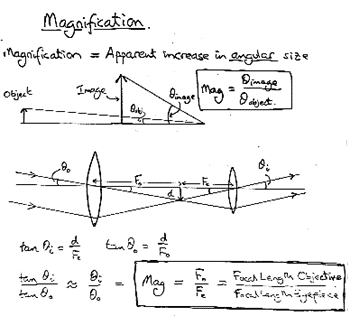 Magnification.
Magnification = Apparent increase in angular size
Object
Image
θobj
θimage
Mag = θimage / θobject.
θo
Fo
Fe
θi
d
tan θi = d/Fe   tan θo = d/Fo
tan θi / tan θo ≈ θi/θo = Mag = Fo/Fe = Focal Length Objective / Focal Length Eyepiece